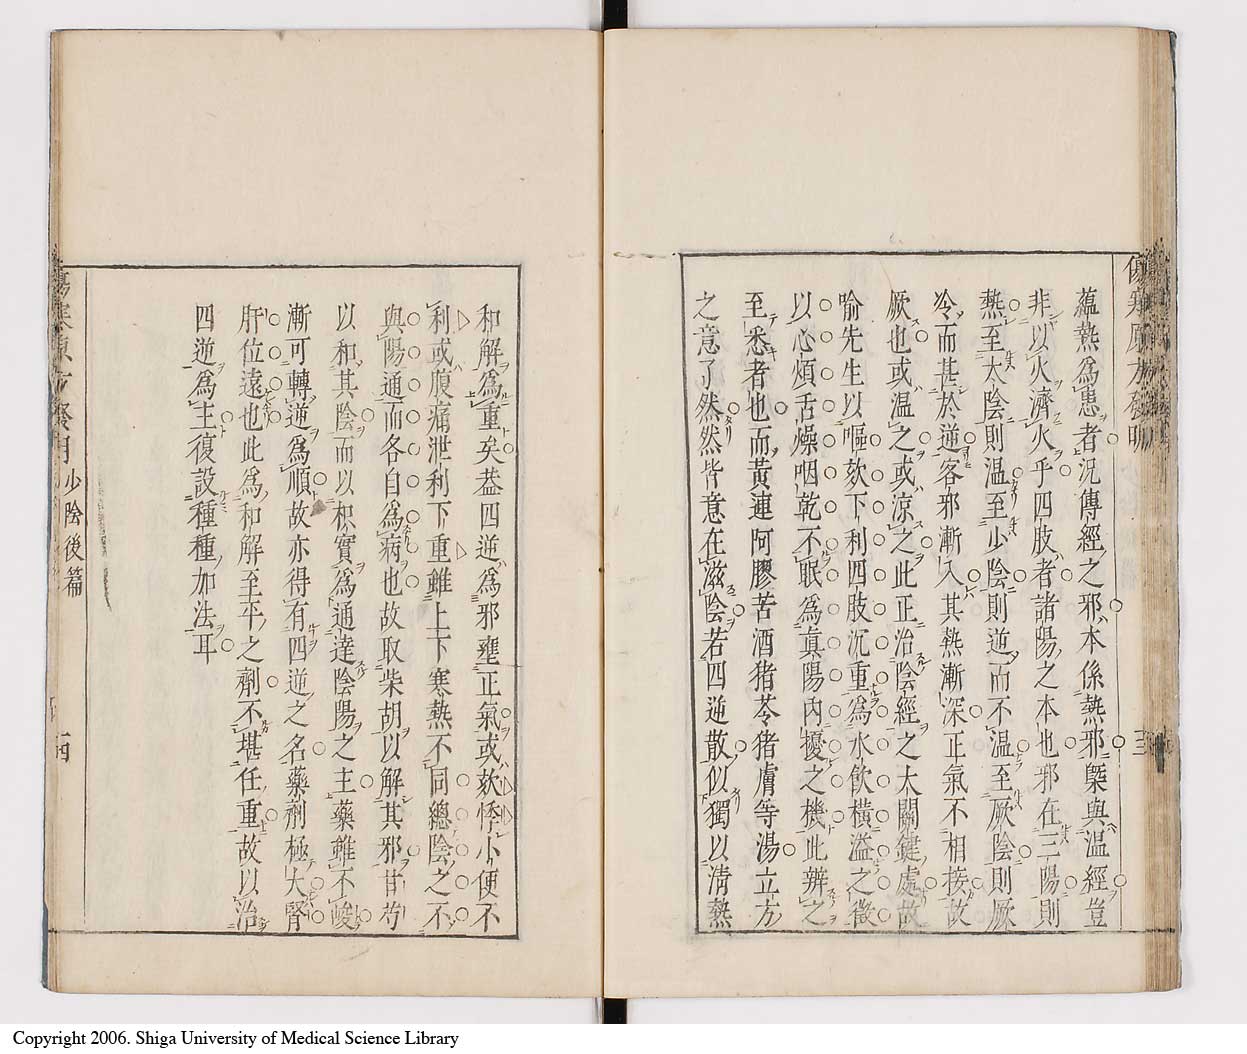 蘊熱爲患者況傳經之邪本係熱邪槩與温經豈
非以火濟火乎四肢者諸陽之本也邪在三陽則
熱至太陰則温至少陰則逆而不温至厥陰則厥
冷而甚於逆客邪漸入其熱漸深正氣不相接故
厥也或温之或凉之此正治陰經之大關鍵處故
喻先生以嘔欬下利四肢沉重爲水飲橫溢之徵
以心煩舌燥咽乾不眠爲真陽内擾之機此辨之
至悉者也而黃連阿膠苦酒猪苓猪膚等湯立方
之意了然然皆意在滋陰若四逆散似獨以清熱
和解爲重矣葢四逆爲邪壅正氣或欬悸小便不
利或腹痛泄利下重雖上下寒熱不同總陰之不
與陽通而各自爲病也故取柴胡以解其邪甘芍
以和其陰而以枳實爲通達陰陽之主藥雖不峻
漸可轉逆爲順故亦得有四逆之名藥劑極大腎
肝位遠也此爲和解至平之劑不堪任重故以治
四逆爲主復設種種加法耳
少陰後篇
Copyright 2006. Shiga University of Medical Science Library